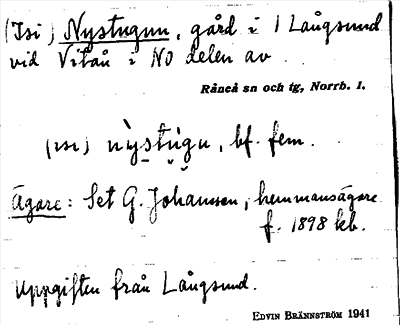 (Isi) Nystugun, gård i 1 Långsund
vid Vitån i NO delen av
Råneå sn och tg, Norrb. l.
(isi) nỳstúgu, bf. fem.
Ägare: Set G. Johansson, hemmansägare
f. 1898 kb.
Uppgiften från Långsund.
EDVIN BRÄNNSTRÖM 1941